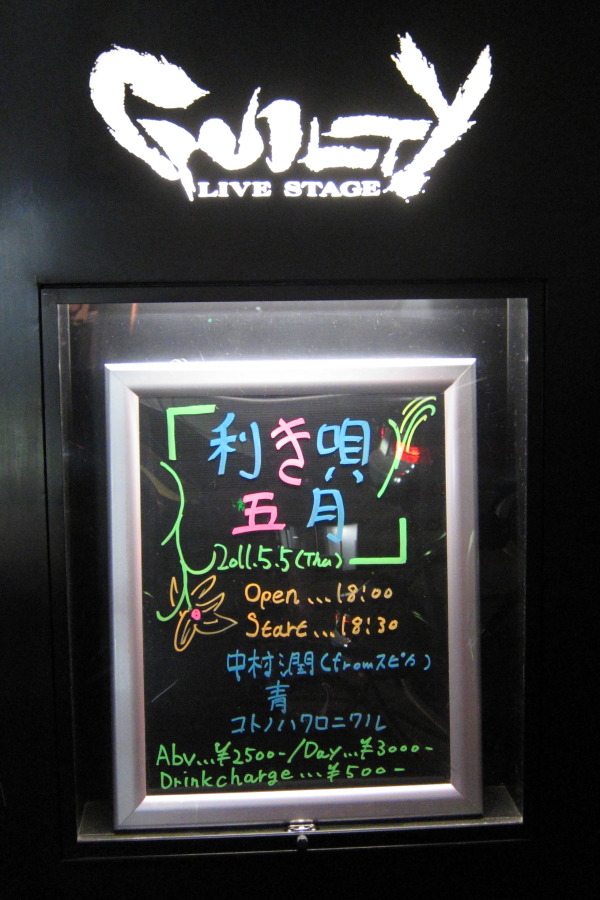 GUILTY
LIVE STAGE
「利き唄
五月
2011.5.5(Thu)」
Open...18:00
Start...18:30
中村潤(fromスピカ)
青
コトノハクロニクル
Adv...¥2500-/Day...¥3000-
Drinkcharge...¥500-